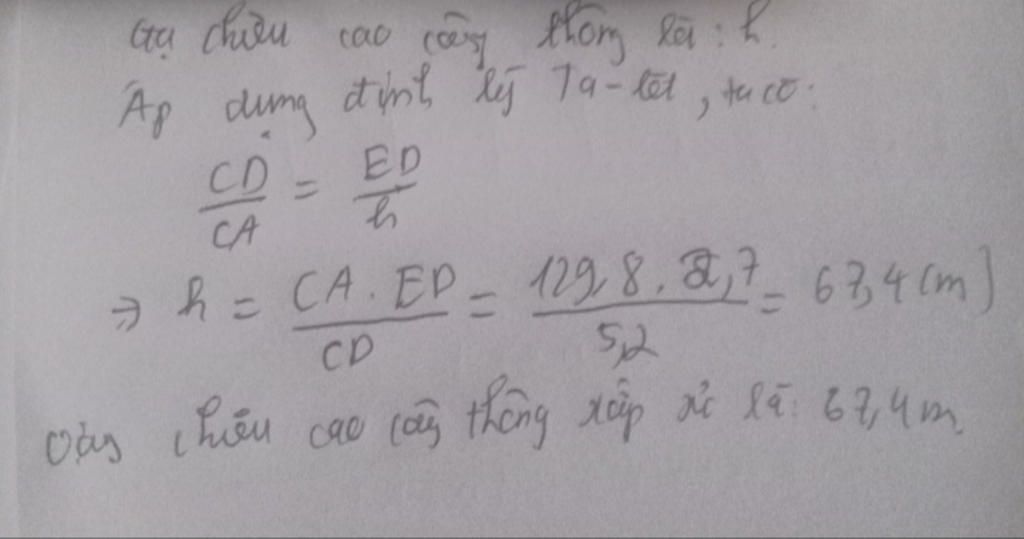 Gọi chiều cao cây thông là: h.
Áp dụng định lý Ta-lét, ta có:
CD/CA = ED/h
⇒ h = CA . ED / CD = 129,8 . 2,7 / 5,2 = 67,4 (m)
Vậy chiều cao cây thông xấp xỉ là: 67,4m.